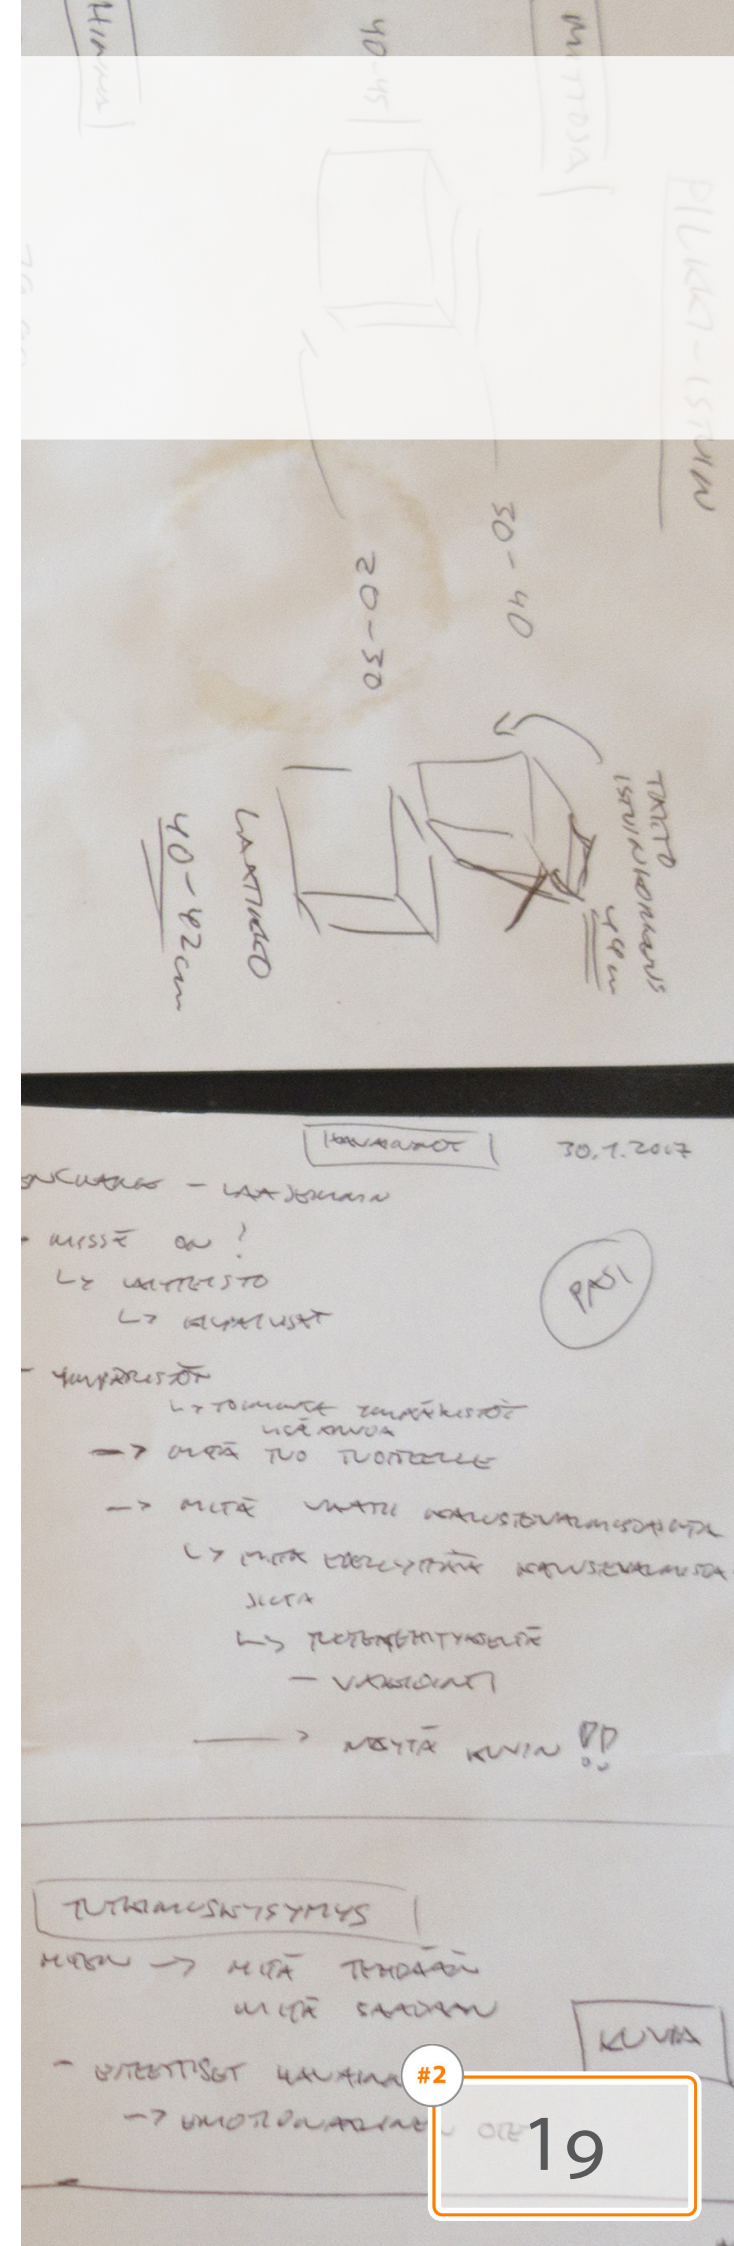 Hinna
40-45
MITTOJA
PILKKI-ISTUIN
30-40
20-30
TAITTO
ISTUINKORKEUS
44cm
LAATIKKO
40-42cm
30.1.2017
- LAAJEMMIN
- MISSÄ ON?
PASI
- YMPÄRISTÖT
↳ TOIMINTA YMPÄRISTÖT
LISÄ ARVOA
→ MITÄ TUO TUOTTEELLE
→ MITÄ VAATII KALUSTEVALMISTAJALTA
↳ MITÄ EDELLYTTÄÄ KALUSTEVALMISTA
JILTA
↳ TUOTEKEHITYKSELTÄ
- VAKIOINTI
→ NÄYTÄ KUVIN !!
TUTKIMUSKYSYMYS
MITEN → MITÄ TEHDÄÄN
MITÄ SAADAAN
KUVIA
- ESTEETTISET
→ EMOTIONAALINEN OTE
#2
19